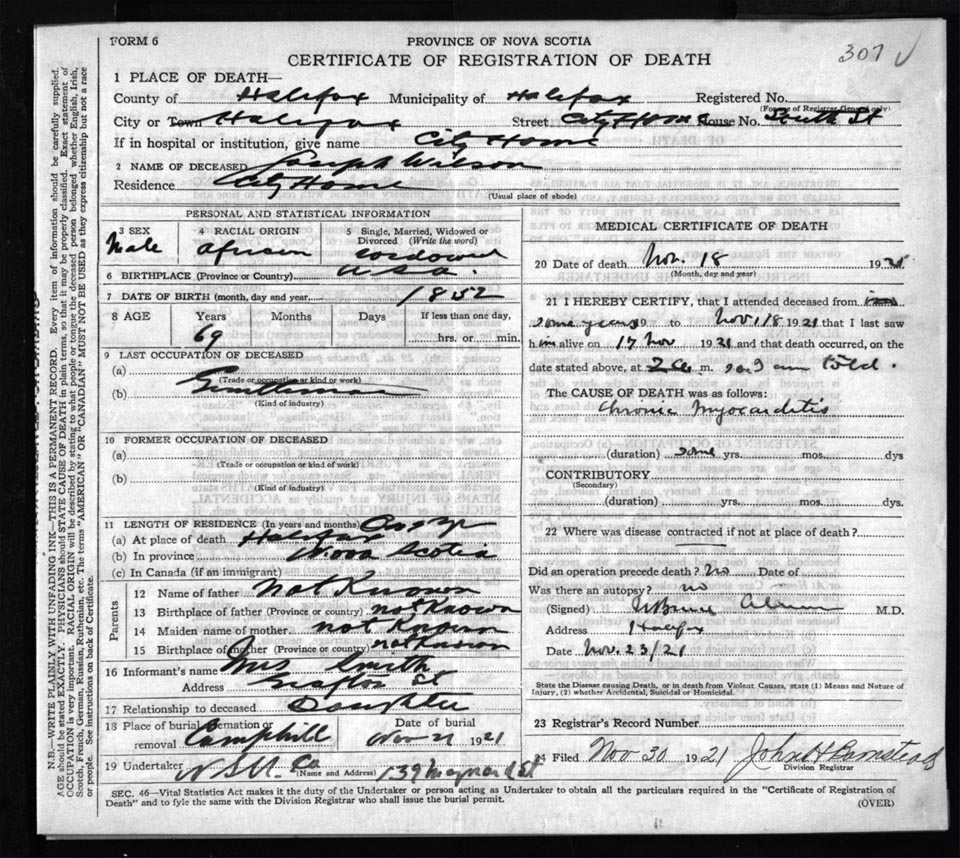 FORM 6
PROVINCE OF NOVA SCOTIA
CERTIFICATE OF REGISTRATION OF DEATH
307
1 PLACE OF DEATH—
County of Halifax Municipality of Halifax Registered No.
(For use of Registrar General only)
City or Town Halifax Street City Home House No. South St
If in hospital or institution, give name City Home
2 NAME OF DECEASED Joseph Wilson
Residence City Home
(Usual place of abode)
PERSONAL AND STATISTICAL INFORMATION
3 SEX 4 RACIAL ORIGIN 5 Single, Married, Widowed or Divorced (Write the word)
Male African Widowed
6 BIRTHPLACE (Province or Country) U.S.A.
7 DATE OF BIRTH (month, day and year) 1852
8 AGE Years Months Days If less than one day,
69 hrs. or min.
9 LAST OCCUPATION OF DECEASED
(a)
(Trade or occupation or kind or work)
(b) Gentleman
(Kind of industry)
10 FORMER OCCUPATION OF DECEASED
(a)
(Trade or occupation or kind of work)
(b)
(Kind of industry)
11 LENGTH OF RESIDENCE (In years and months)
(a) At place of death Halifax
(b) In province Nova Scotia
(c) In Canada (if an immigrant)
Parents
12 Name of father Not Known
13 Birthplace of father (Province or country) not Known
14 Maiden name of mother not Known
15 Birthplace of mother (Province or country) not Known
16 Informant's name Mrs Smith
Address Grafton St
17 Relationship to deceased Daughter
18 Place of burial, cremation or removal Camphill
Date of burial Nov 21 1921
19 Undertaker N S U. Co 139 Maynard St
(Name and Address)
MEDICAL CERTIFICATE OF DEATH
20 Date of death Nov. 18 1921
(Month, day and year)
21 I HEREBY CERTIFY, that I attended deceased from
some years 19 to Nov 18 1921 that I last saw
him alive on 17 Nov 1921 and that death occurred, on
date stated above, at m. as I am told.
The CAUSE OF DEATH was as follows:
Chronic Myocarditis
(duration) some yrs. mos. dys
CONTRIBUTORY
(Secondary)
(duration) yrs. mos. dys.
22 Where was disease contracted if not at place of death?
Did an operation precede death? no Date of
Was there an autopsy? no
(Signed) M.D.
Address Halifax
Date Nov. 23/21
State the Disease causing Death, or in death from Violent Causes, state (1) Means and Nature of
Injury, (2) whether Accidental, Suicidal or Homicidal.
23 Registrar's Record Number
24 Filed Nov 30 1921 John H
Division Registrar
SEC. 46—Vital Statistics Act makes it the duty of the Undertaker or person acting as Undertaker to obtain all the particulars required in the "Certificate of Registration of
Death" and to fyle the same with the Division Registrar who shall issue the burial permit.
(OVER)
N.B.—WRITE PLAINLY WITH UNFADING INK—THIS IS A PERMANENT RECORD. Every item of information should be carefully supplied.
AGE should be stated EXACTLY. PHYSICIANS should STATE CAUSE OF DEATH in plain terms, so that it may be properly classified. Exact statement of
OCCUPATION is very important. RACIAL ORIGIN will be described by stating to what people or tongue the deceased person belonged, whether English, Irish,
Scotch, French, German, Russian, Ruthenian, etc. The terms "AMERICAN" OR "CANADIAN" MUST NOT BE USED as they express citizenship but not a race
or people. See instructions on back of Certificate.